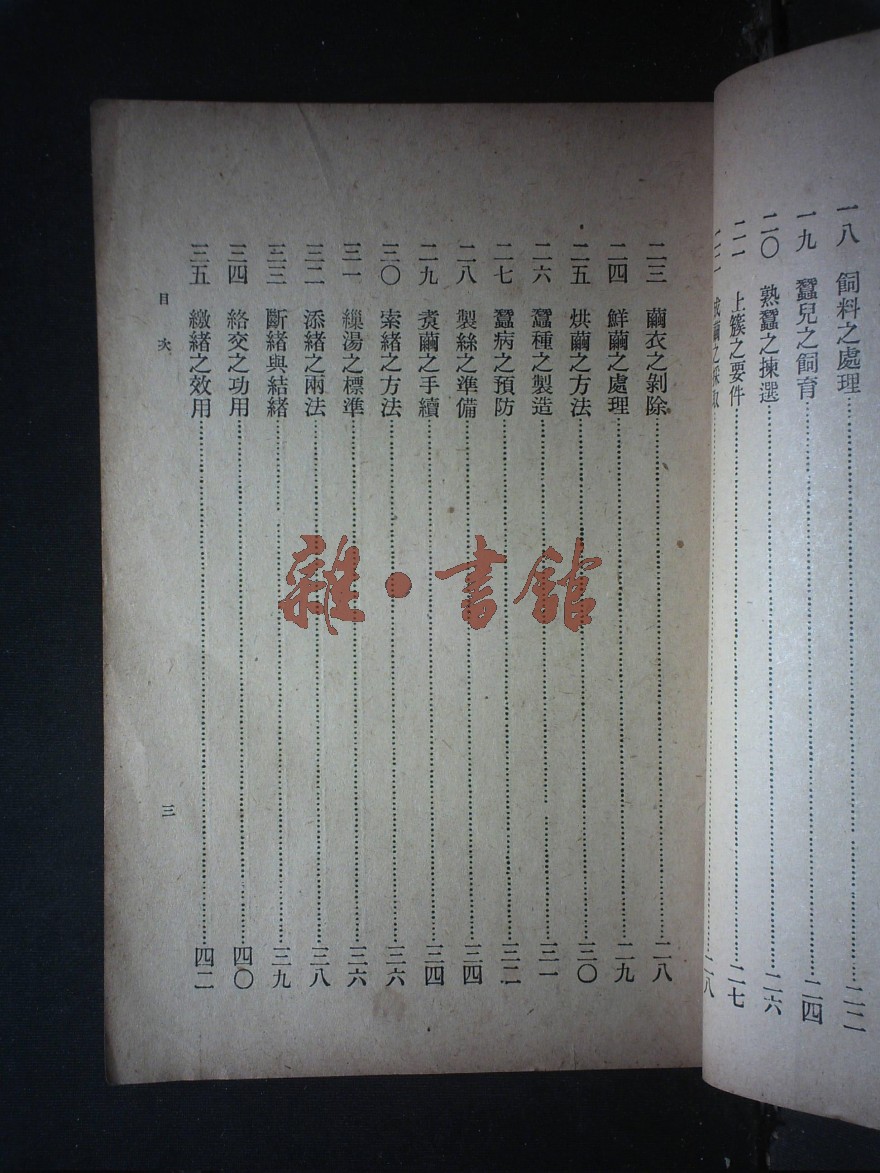 一八 飼料之處理 二二
一九 蠶兒之飼育 二四
二〇 熟蠶之揀選 二六
二一 上簇之要件 二七
繭之採 二八
二三 繭衣之剝除 二八
二四 鮮繭之處理 二九
二五 烘繭之方法 三〇
二六 蠶種之製造 三一
二七 蠶病之預防 三二
二八 製絲之準備 三四
二九 煑繭之手續 三四
三〇 索緒之方法 三六
三一 繅湯之標準 三六
三二 添緒之兩法 三八
三三 斷緒與結緒 三九
三四 絡交之功用 四〇
三五 繳緒之效用 四二
目次
三
雜·書館